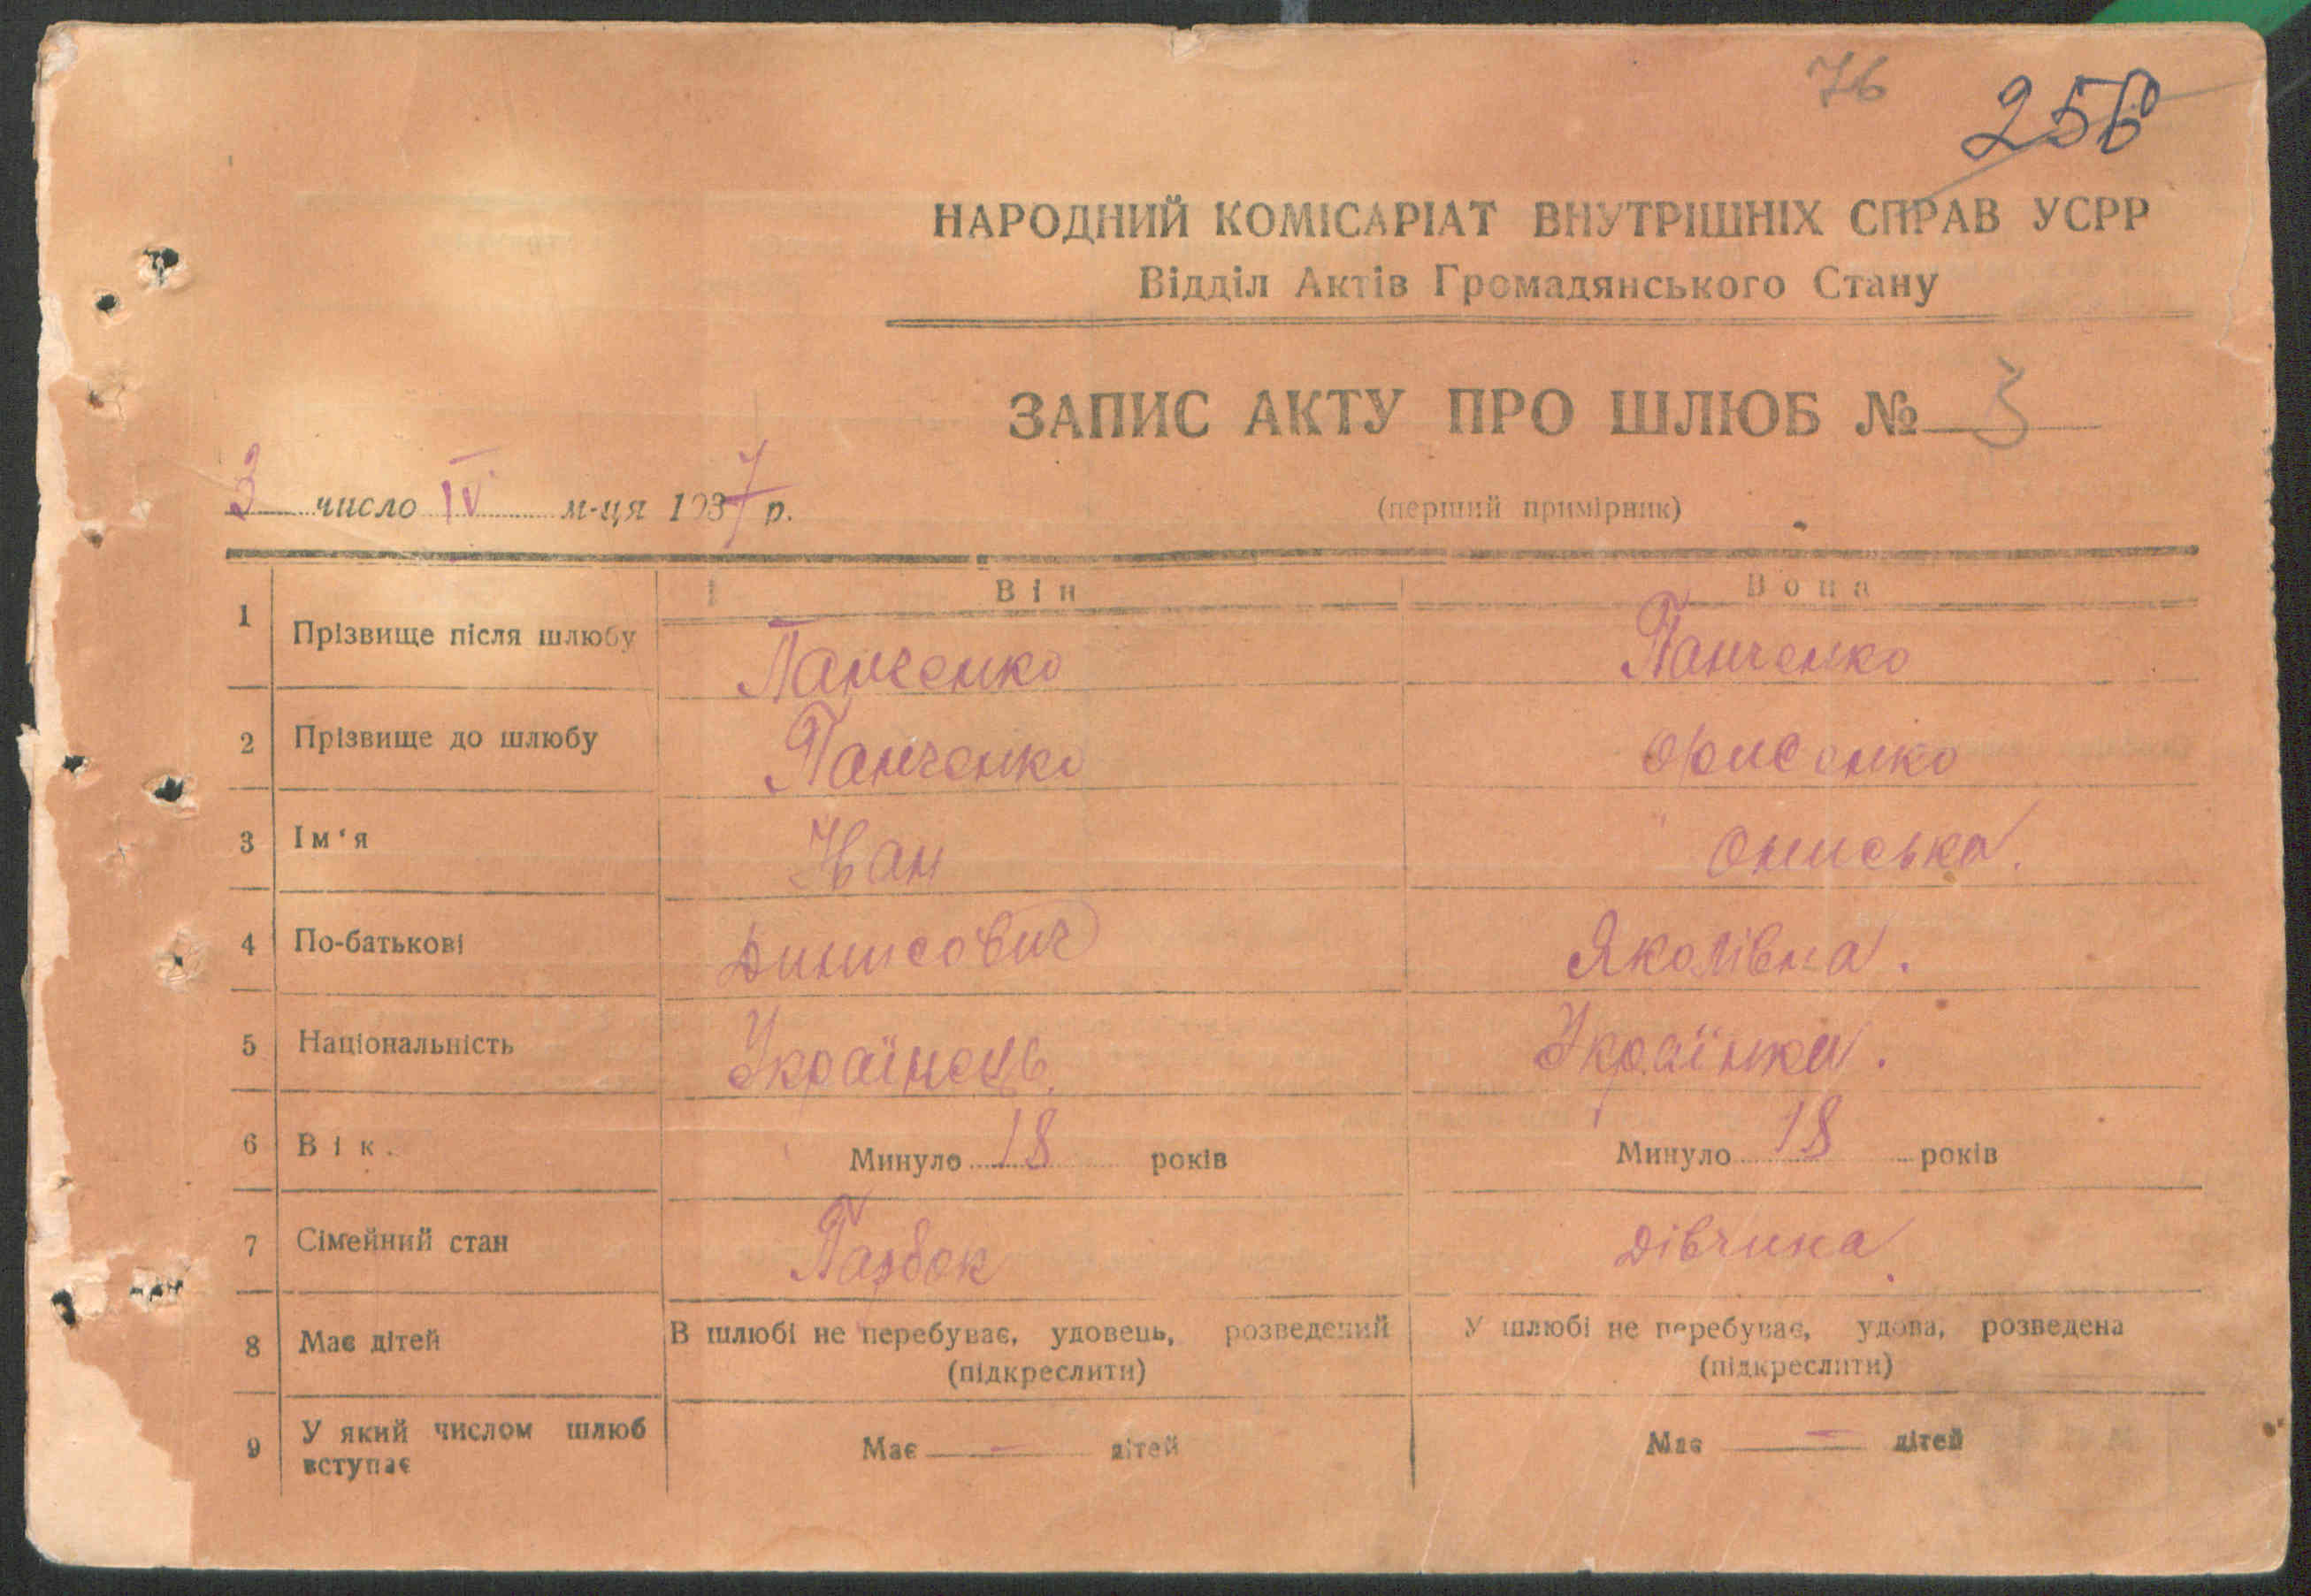 76
256
НАРОДНИЙ КОМІСАРІАТ ВНУТРІШНІХ СПРАВ УСРР
Відділ Актів Громадянського Стану
ЗАПИС АКТУ ПРО ШЛЮБ № 3
3 число IV м-ця 1937 р.
(перший примірник)
Він Вона
1 Прізвище після шлюбу Панченко Панченко
2 Прізвище до шлюбу Панченко
3 Ім‘я Іван Ониська.
4 По-батькові Динисович Яколівна.
5 Національність Українець. Українка.
6 Вік. Минуло 18 років Минуло 18 років
7 Сімейний стан Парбок дівчина
8 Має дітей В шлюбі не перебуває, удовець, розведений У шлюбі не перебуває, удова, розведена
(підкреслити) (підкреслити)
9 У який числом шлюб вступає Має — дітей Має — дітей